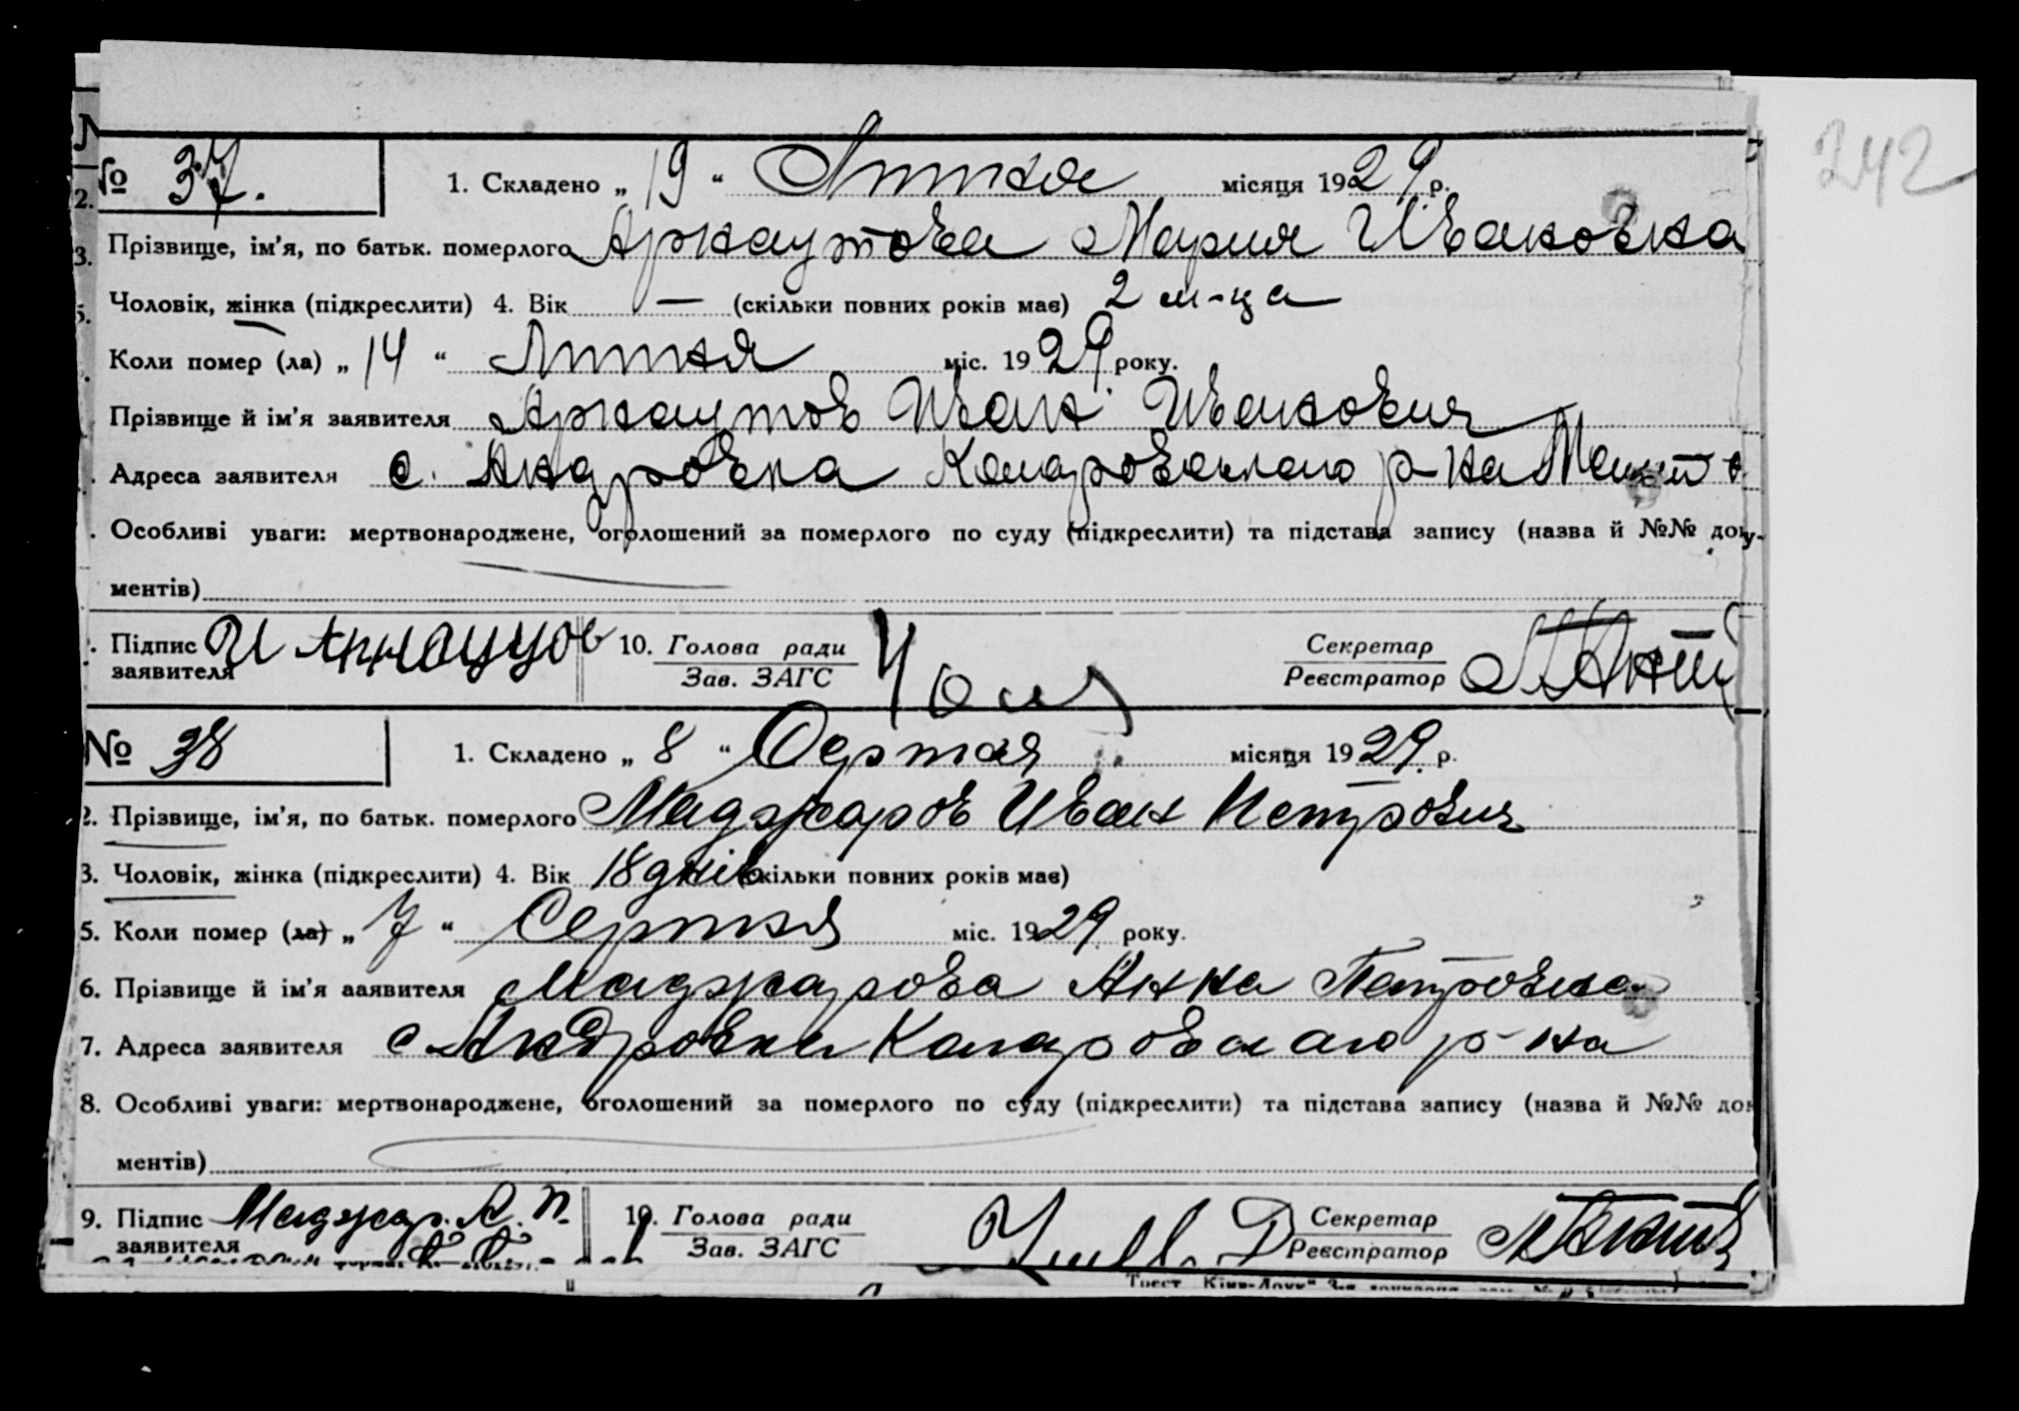 242
№ 37. 1. Складено „19“ Липня місяця 1929 р.
Прізвище, ім'я, по батьк. померлого Арнаутова Мария Ивановна
Чоловік, жінка (підкреслити) 4. Вік — (скільки повних років має) 2 м-ца
Коли помер (ла) „14“ Липня міс. 1929 року.
Прізвище й ім'я заявителя Арнаутов Иван Иванович
Адреса заявителя с. Андровка Комаровского р-на
Особливі уваги: мертвонароджене, оголошений за померлого по суду (підкреслити) та підстава запису (назва й №№ доку-
ментів)
Підпис заявителя И Арнаутов 10. Голова ради Зав. ЗАГС Секретар Реєстратор
№ 38 1. Складено „8“ Серпня місяця 1929 р.
2. Прізвище, ім'я, по батьк. померлого Маджаров Иван Петрович
3. Чоловік, жінка (підкреслити) 4. Вік 18 днів (скільки повних років має)
5. Коли помер (ла) „7“ Серпня міс. 1929 року.
6. Прізвище й ім'я заявителя Маджарова Анна Петровна
7. Адреса заявителя с Андровка р-на
8. Особливі уваги: мертвонароджене, оголошений за померлого по суду (підкреслити) та підстава запису (назва й №№ док
ментів)
9. Підпис заявителя Маджар. А. П. 10. Голова ради Зав. ЗАГС Секретар Реєстратор